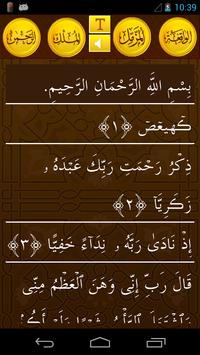 10:39
الواقعة المزمل T الملك الرحمن
بِسْمِ اللَّهِ الرَّحْمَانِ الرَّحِيمِ.
كٓهيعٓصٓ ﴿١﴾
ذِكْرُ رَحْمَتِ رَبِّكَ عَبْدَهُۥ
زَكَرِيَّآ ﴿٢﴾
إِذْ نَادَىٰ رَبَّهُۥ نِدَآءً خَفِيًّا ﴿٣﴾
قَالَ رَبِّ إِنِّى وَهَنَ ٱلْعَظْمُ مِنِّى
وَٱشْتَعَلَ ٱلرَّأْسُ شَيْبًا وَلَمْ أَكُنۢ